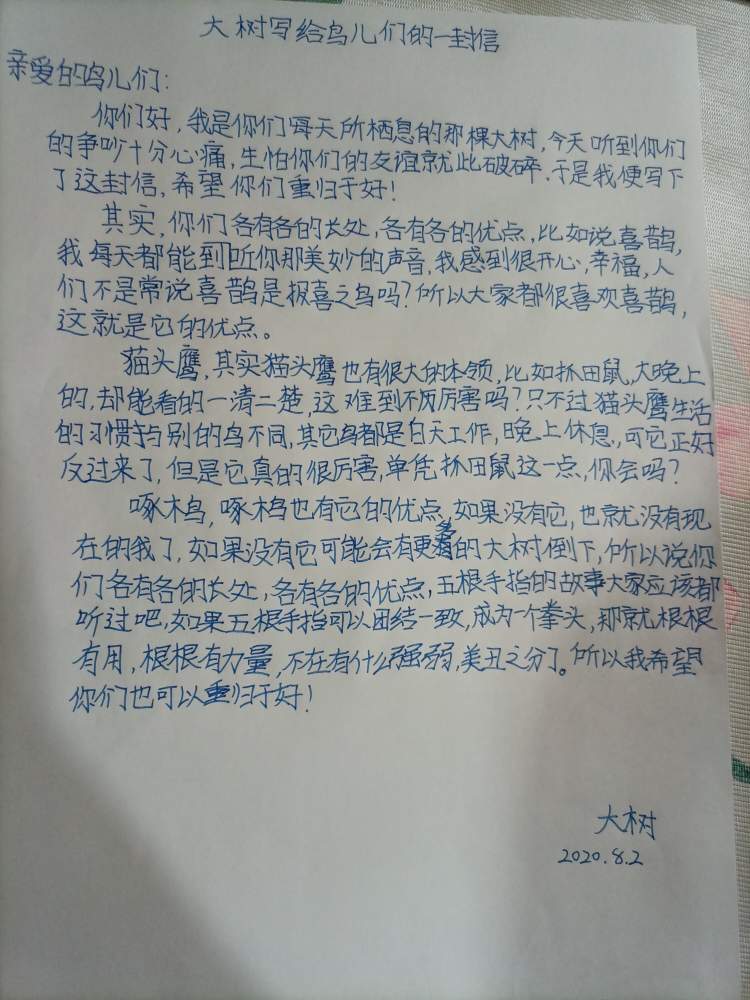 大树写给鸟儿们的一封信
亲爱的鸟儿们：
你们好，我是你们每天所栖息的那棵大树，今天听到你们
的争吵十分心痛，生怕你们的友谊就此破碎，于是我便写下
了这封信，希望你们重归于好！
其实，你们各有各的长处，各有各的优点，比如说喜鹊，
我每天都能到听你那美妙的声音，我感到很开心，幸福，人
们不是常说喜鹊是报喜之鸟吗？所以大家都很喜欢喜鹊，
这就是它的优点。
猫头鹰，其实猫头鹰也有很大的本领，比如抓田鼠，大晚上
的，却能看的一清二楚，这难到不厉害吗？只不过猫头鹰生活
的习惯与别的鸟不同，其它鸟都是白天工作，晚上休息，可它正好
反过来了，但是它真的很厉害，单凭抓田鼠这一点，你会吗？
啄木鸟，啄木鸟也有它的优点，如果没有它，也就没有现
在的我了，如果没有它可能会有更多的大树倒下，所以说你
们各有各的长处，各有各的优点，五根手指的故事大家应该都
听过吧，如果五根手指可以团结一致，成为一个拳头，那就根根
有用，根根有力量，不在有什么强弱，美丑之分了。所以我希望
你们也可以重归于好！
大树
2020.8.2